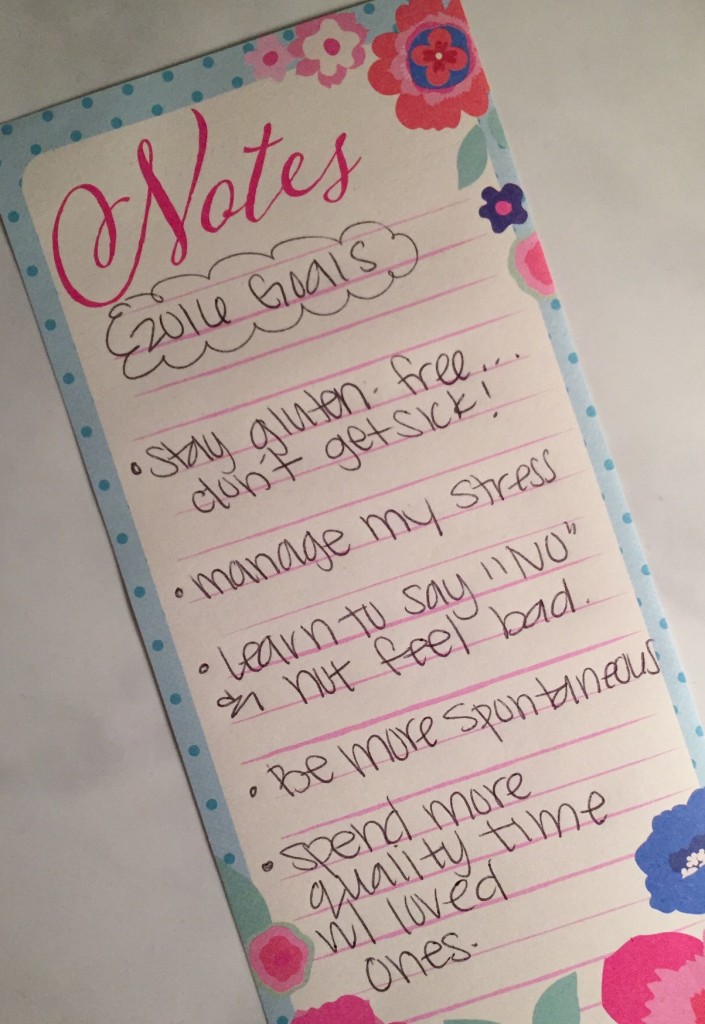 Notes
2016 Goals
• stay gluten-free...
don't get sick!
• manage my stress
• Learn to say "NO"
& not feel bad.
• Be more spontaneous
• spend more
quality time
w/ loved
ones.